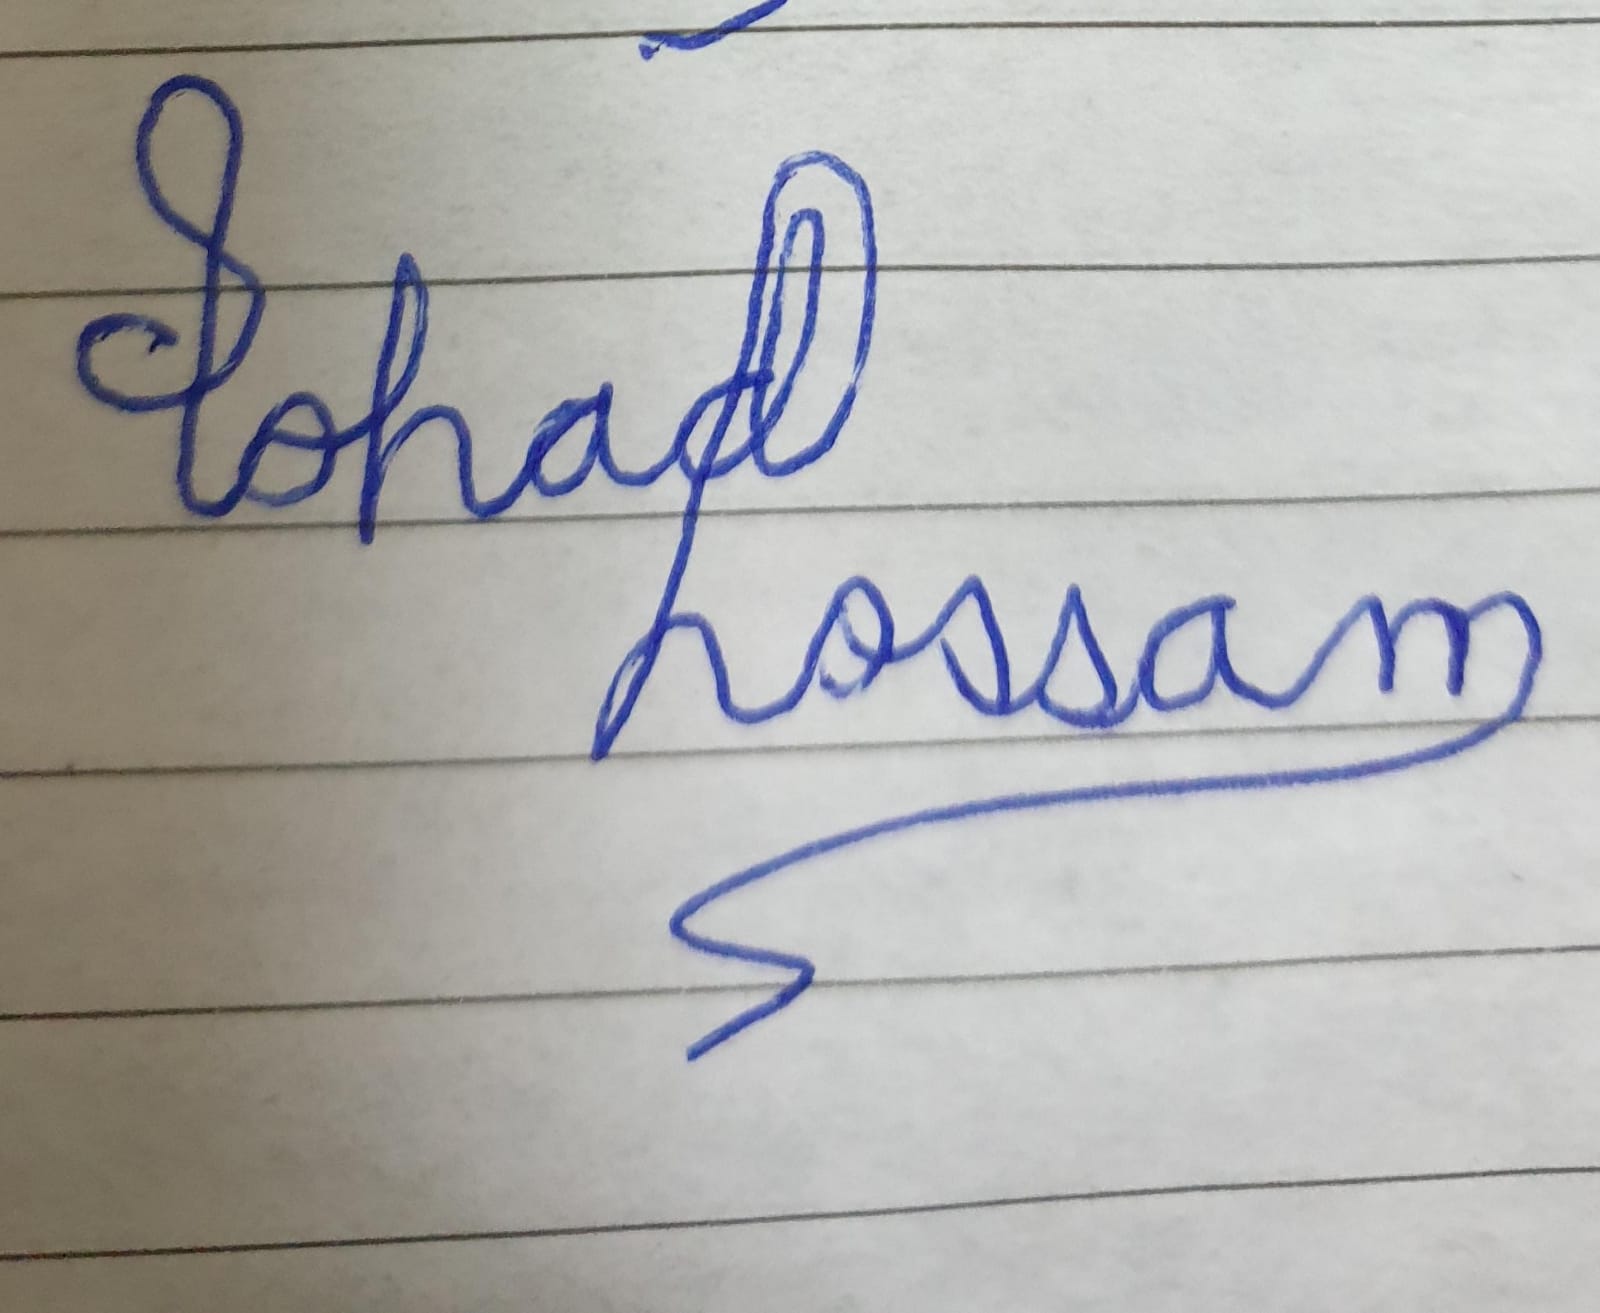 Sohad
hossam